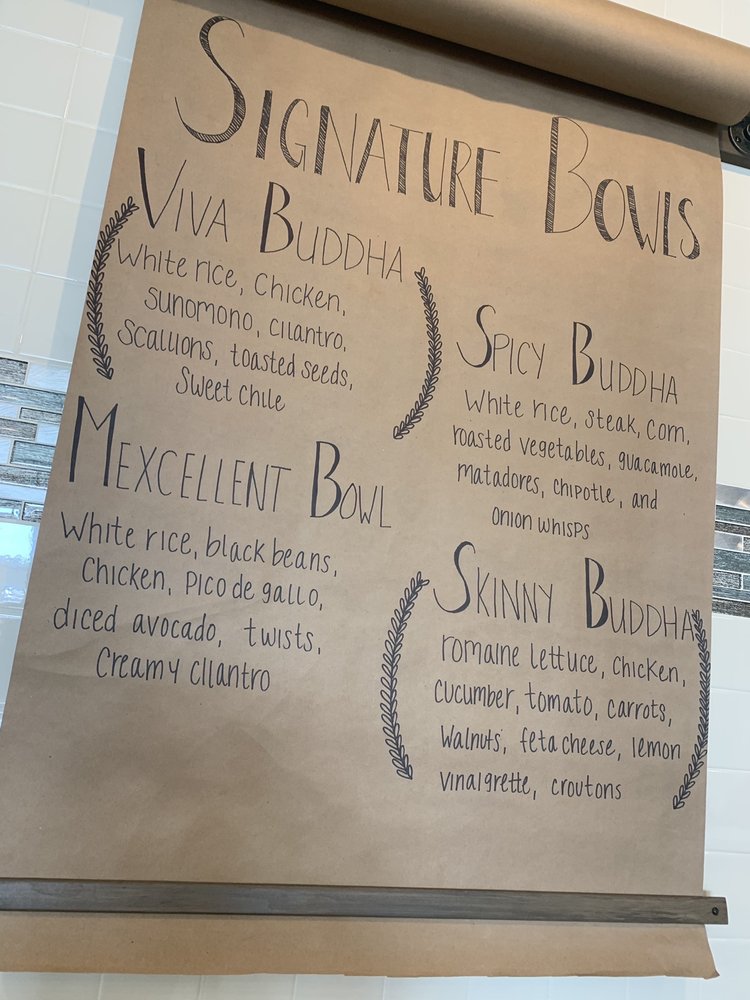 SIGNATURE BOWLS
VIVA BUDDHA
White rice, Chicken,
sunomono, cilantro,
Scallions, toasted seeds,
Sweet chile
SPICY BUDDHA
White rice, steak, corn,
roasted vegetables, guacamole,
matadores, chipotle, and
onion whisps
MEXCELLENT BOWL
White rice, black beans,
Chicken, Pico de gallo,
diced avocado, twists,
Creamy cilantro
SKINNY BUDDHA
romaine lettuce, chicken,
cucumber, tomato, carrots,
Walnuts, feta cheese, lemon
vinaigrette, croutons